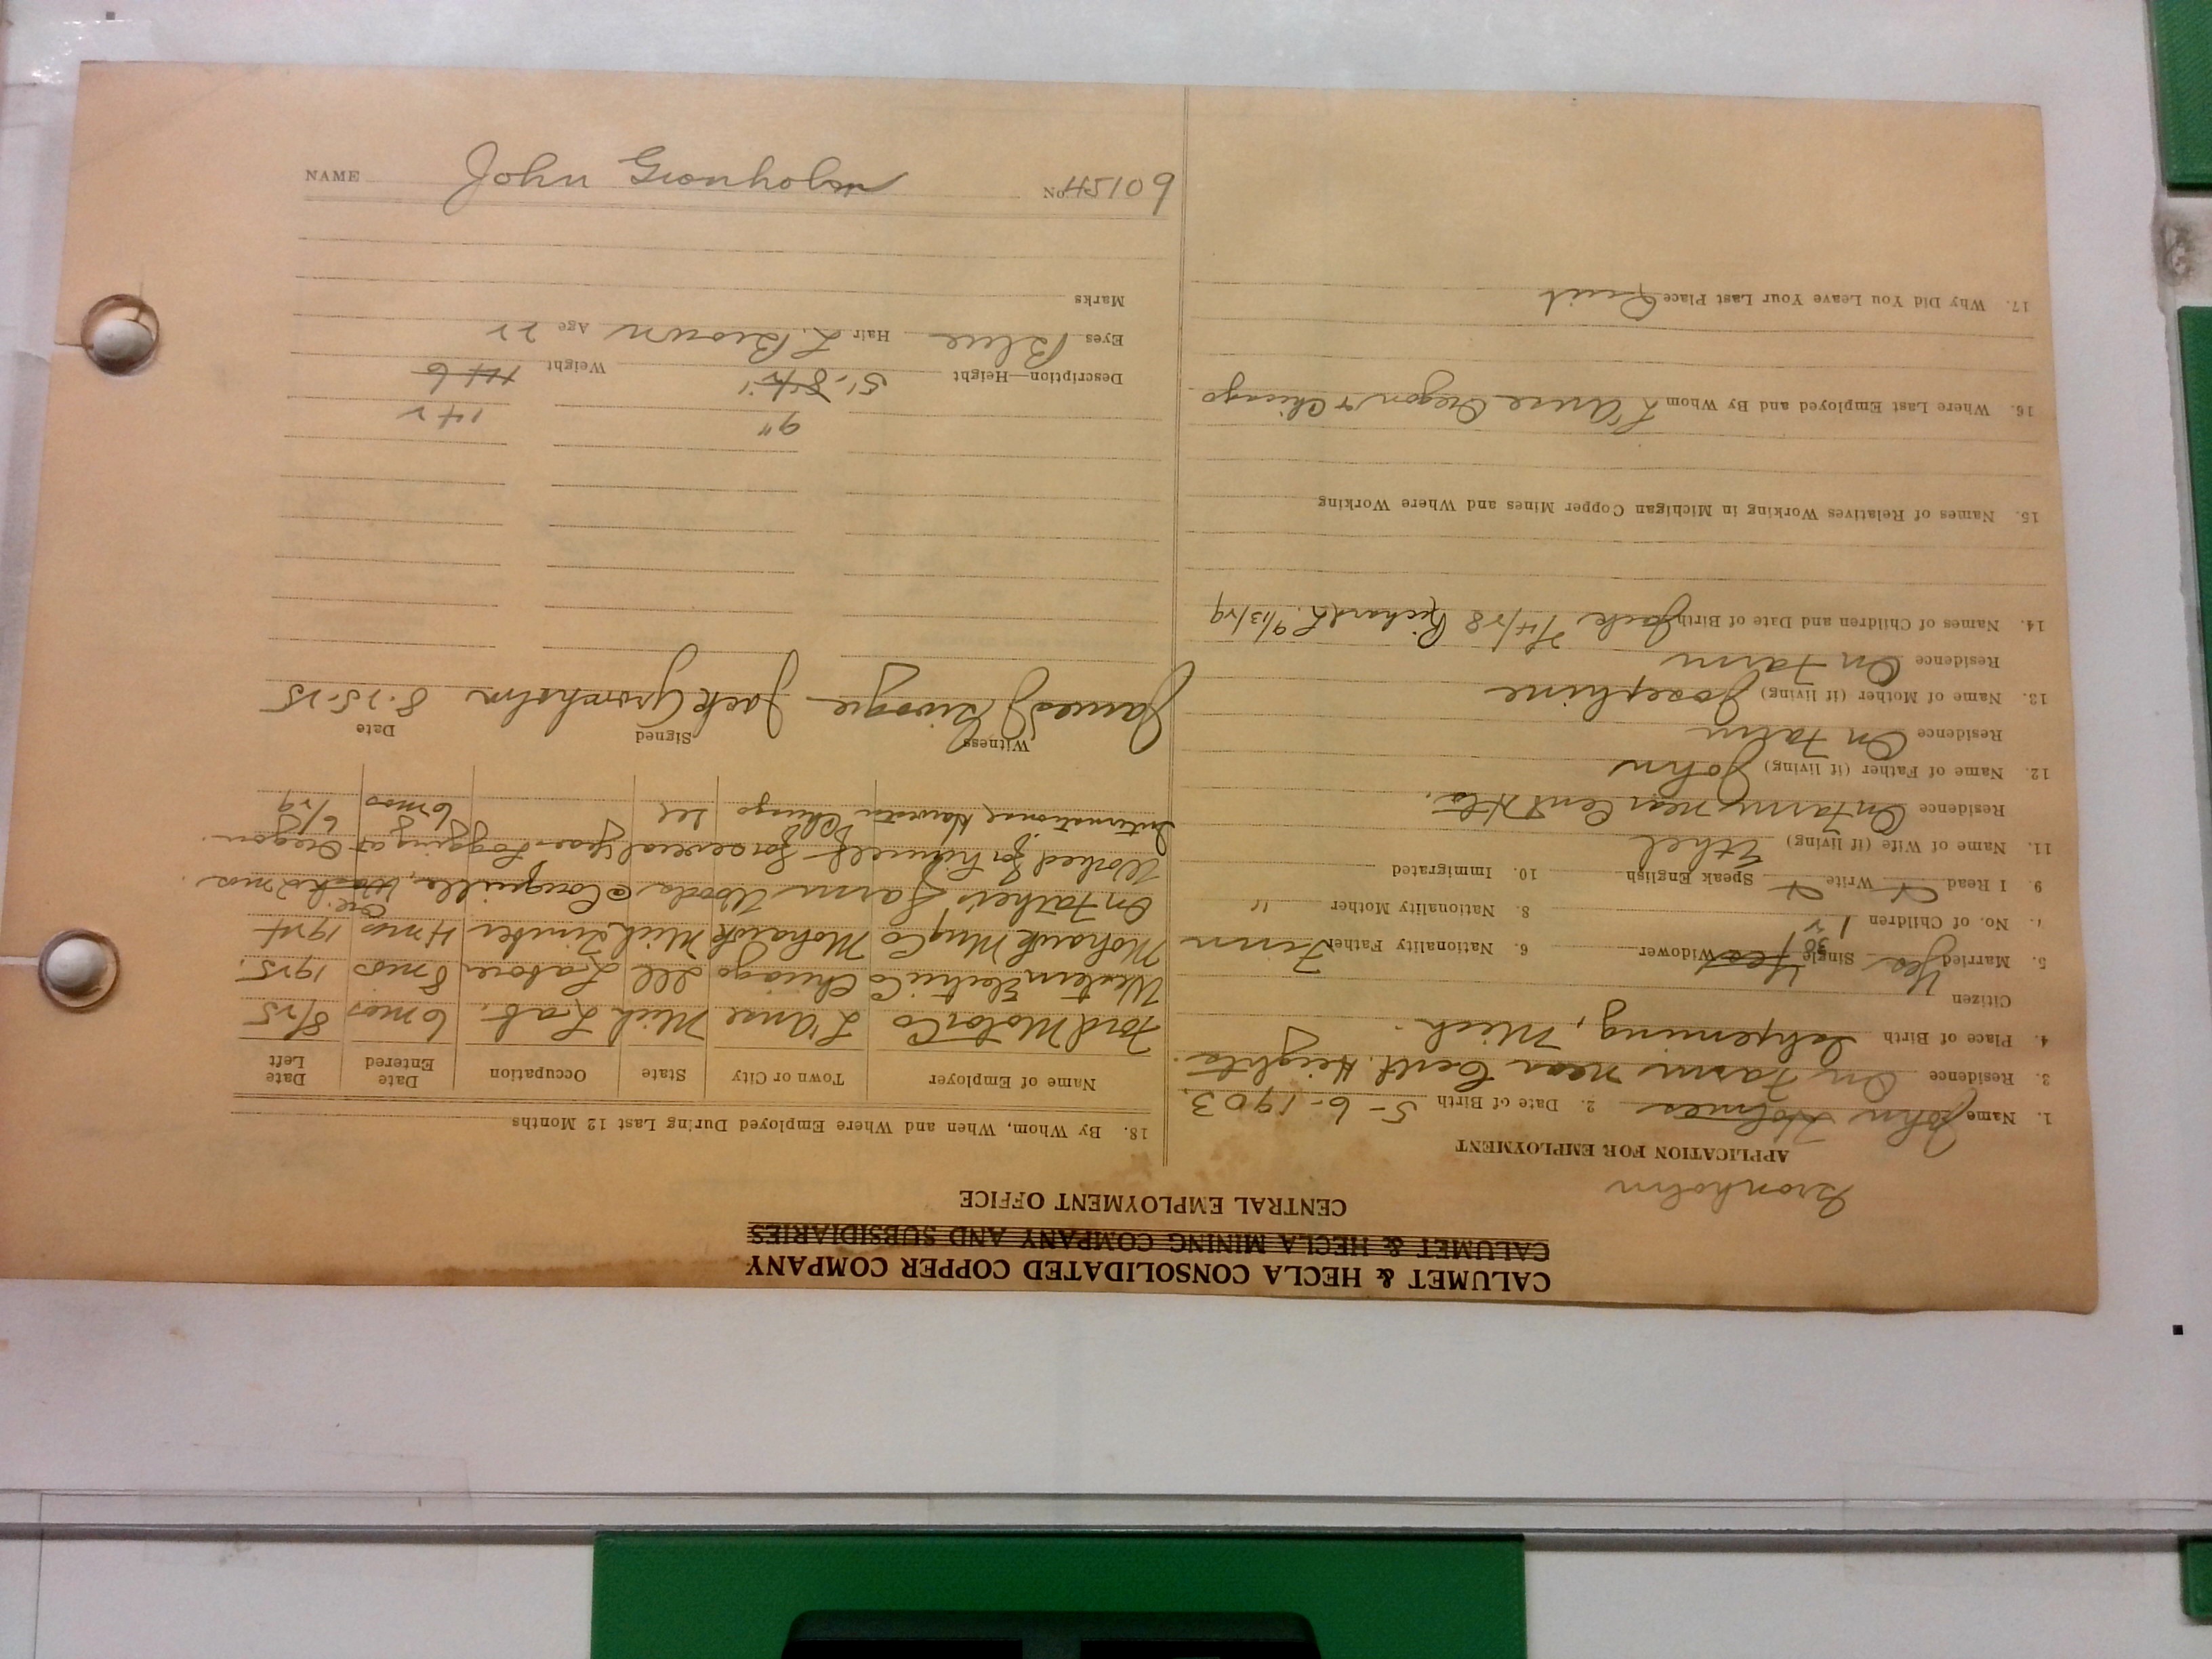 CALUMET & HECLA CONSOLIDATED COPPER COMPANY
CALUMET & HECLA MINING COMPANY AND SUBSIDIARIES
CENTRAL EMPLOYMENT OFFICE
Gronholm
APPLICATION FOR EMPLOYMENT
1. Name John Holmes 2. Date of Birth 5-6-1903
3. Residence On Farm near Cent. Heights.
4. Place of Birth Ishpeming, Mich.
Citizen Yes
5. Married Yes Single Yes Widower 6. Nationality Father Finn
7. No. of Children 1 2 8. Nationality Mother "
9. I Read Write Speak English 10. Immigrated
11. Name of Wife (if living) Ethel
Residence On Farm near Cent Hts.
12. Name of Father (if living) John
Residence On Farm
13. Name of Mother (if living) Josephine
Residence On Farm
14. Names of Children and Date of Birth Jack 7/4/28 Richard L. 9/13/29
15. Names of Relatives Working in Michigan Copper Mines and Where Working
16. Where Last Employed and By Whom L'Anse Oregon & Chicago
17. Why Did You Leave Your Last Place Quit
18. By Whom, When and Where Employed During Last 12 Months
Name of Employer Town or City State Occupation Date Entered Date Left
Ford Motor Co L'Anse Mich Lab. 6 mos 8/25
Western Electric Co Chicago Ill Laborer 8 mos 1925.
Mohawk Mng Co Mohawk Mich Timber 4 mos 1924
On Father's Farm Woods Coquille, Wash Ore. 2 mos.
Worked for himself for several years Logging at Oregon.
International Harvester Chicago Ill 6 mos 6/29
Witness Signed Date
James J Jack Gronholm 8-25-25
9" 142
Description—Height 5'-8 Weight 146
Eyes Blue Hair L. Brown Age 22
Marks
NAME John Gronholm No. 60154